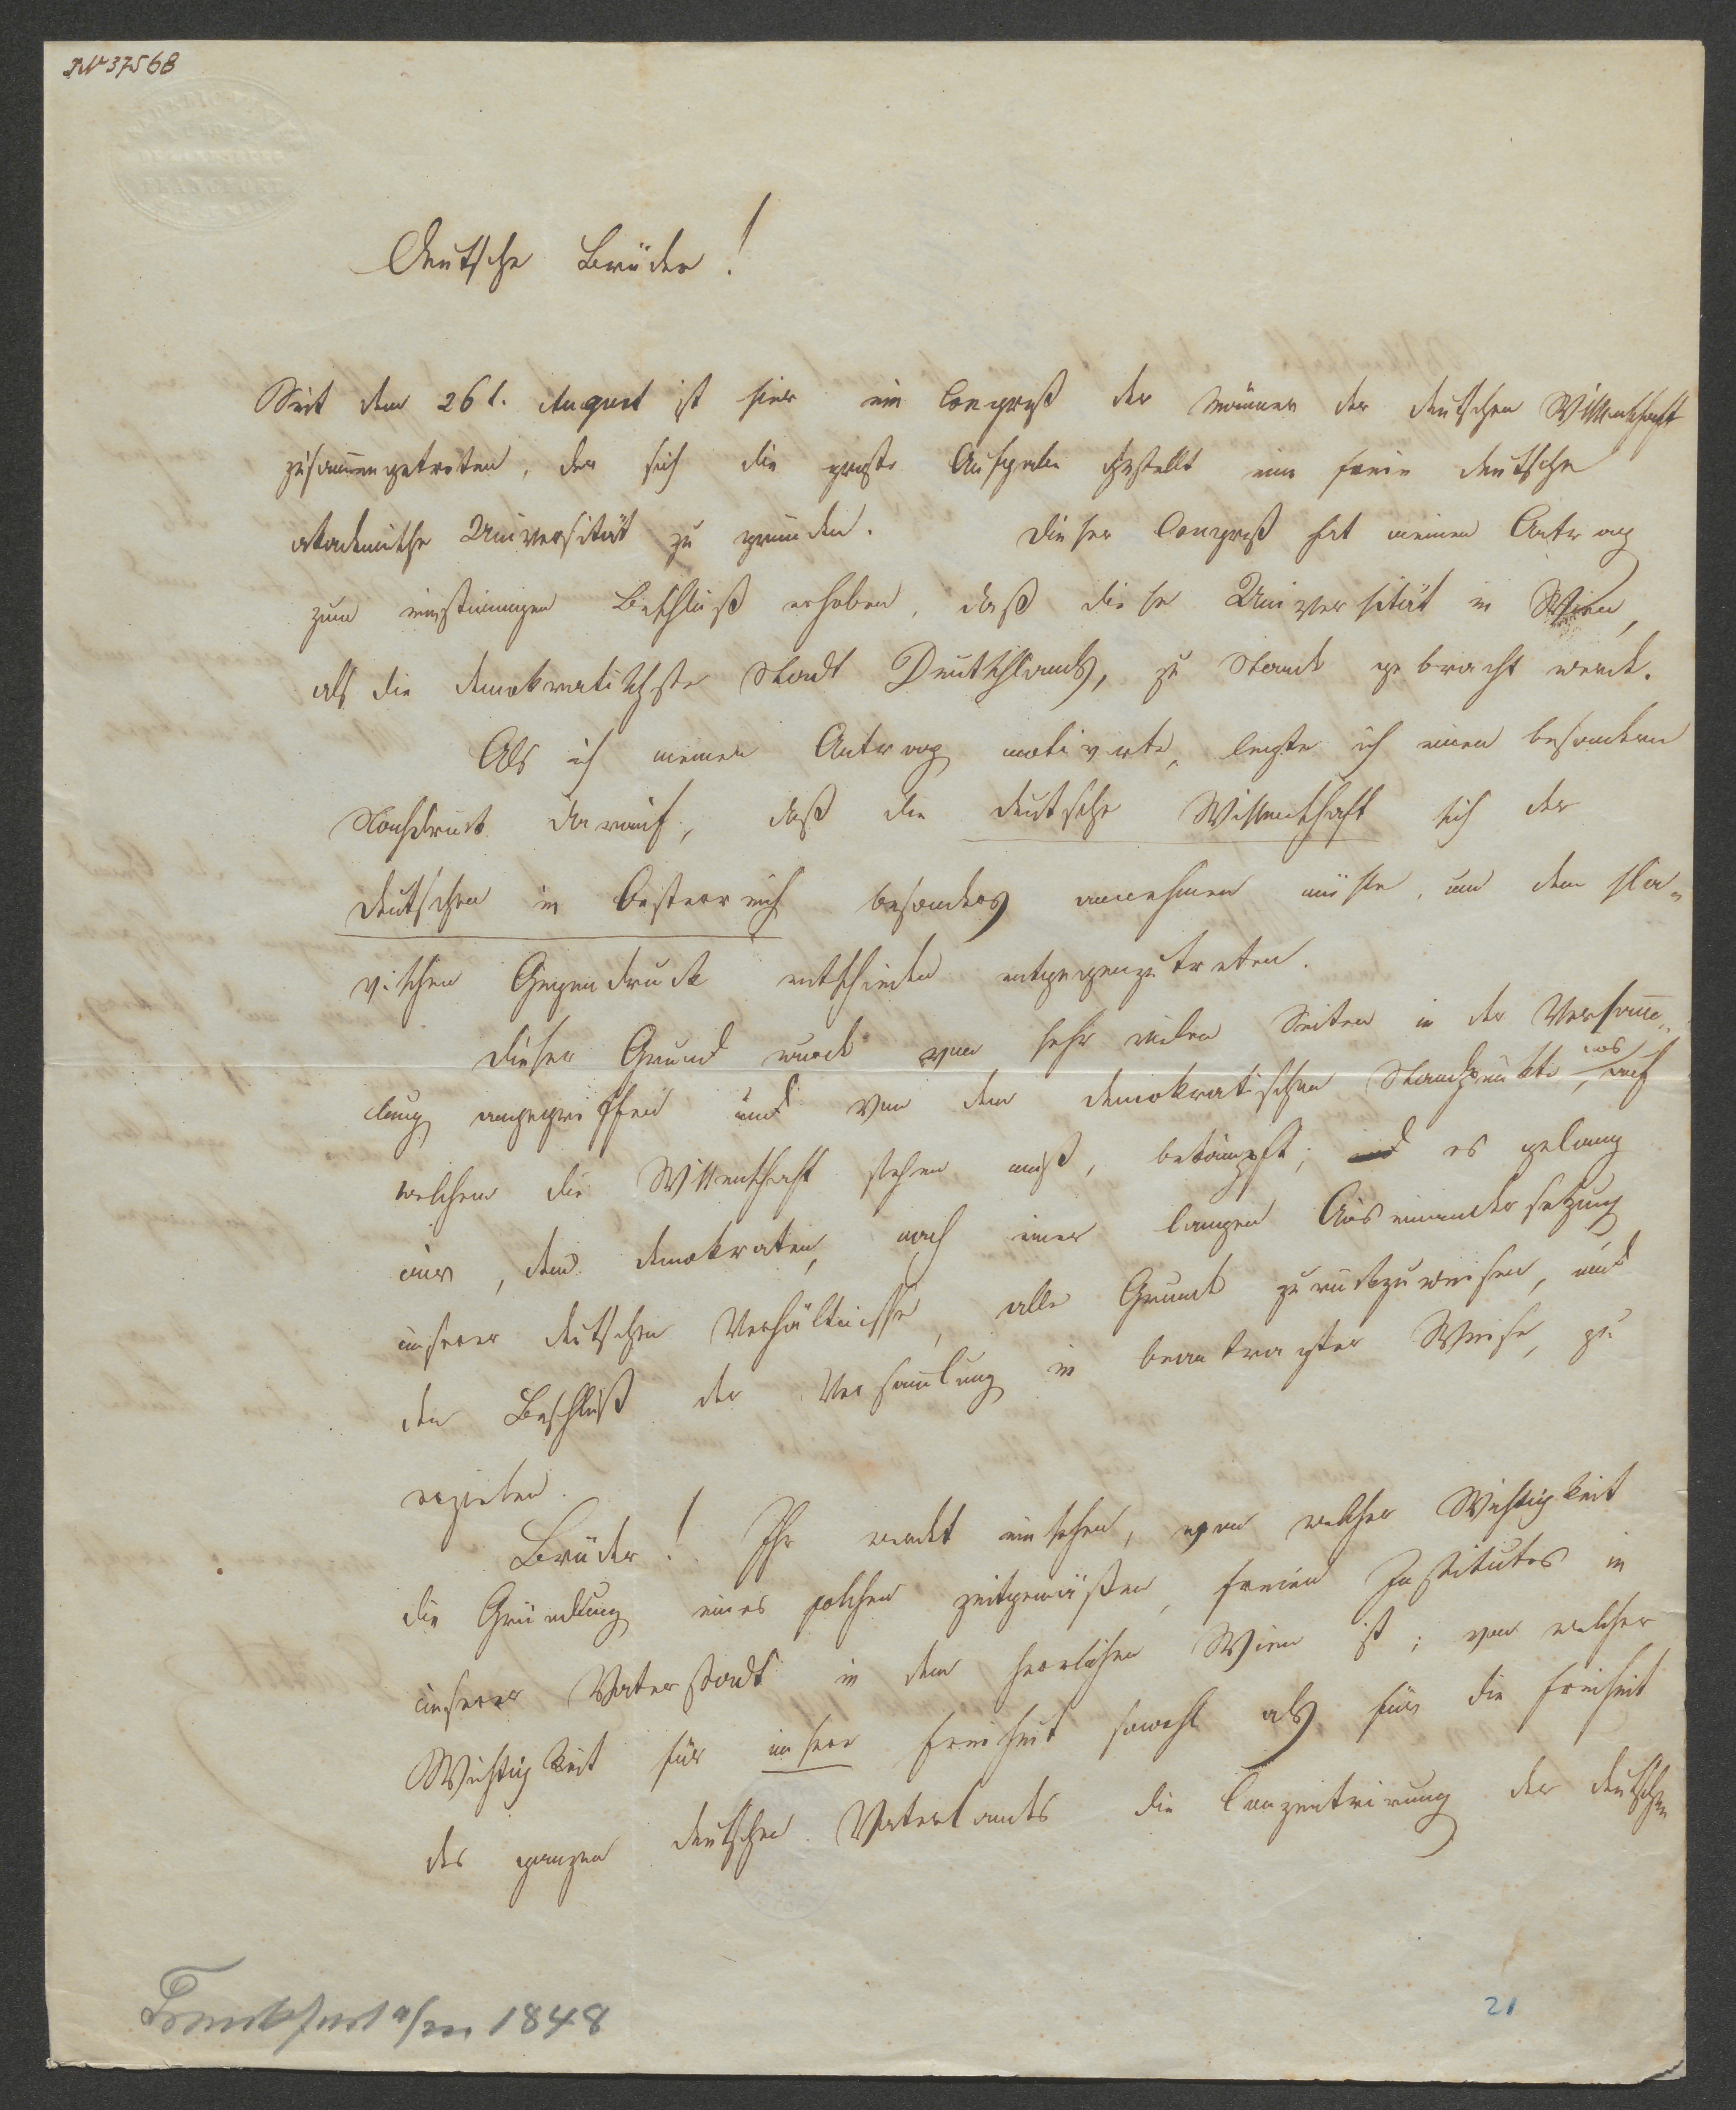 IN 37568
FRANCFORT
Deutsche Brüder!
Seit dem 26t. August ist hier ein Congreß der Männer der deutschen Wissenschaft
zusam̅engetreten, der sich die große Aufgabe gestellt eine freie deutsche
akademische Universität zu gründen. Dieser Congreß hat meinen Antrag
zum einstimmigen Beschluß erhoben, daß diese Universität in Wien,
als die demokratischste Stadt Deutschlands, zu Stande gebracht werde.
Als ich meinen Antrag motivirte, legte ich einen besondern
Nachdruck darauf, daß die deutsche Wissenschaft sich der
Deutschen in Oesterreich besonders annehmen müsse, um dem sla-
vischen Gegendrucke entschieden entgegenzutreten.
Dieser Grund wurde von sehr vielen Seiten in der Versam̅-
lung angegriffen und von dem demokratischen Standpunkte, auf
welchem die Wissenschaft stehen muß, bekämpft; es gelang
mir, dem Demokraten, nach einer langen Auseinandersetzung
unserer deutschen Verhältnisse, alle Gründe zurückzuweisen, und
den Beschluß der Versam̅lung in beantragter Weise, zu
erzielen.
Brüder! Ihr werdet einsehen, von welcher Wichtigkeit
die Gründung eines solchen zeitgemäßen, freien Institutes in
unserer Vaterstadt in dem herrlichen Wien ist; von welcher
Wichtigkeit für unsere Freiheit sowohl als für die Freiheit
des ganzen deutschen Vaterlandes die Conzentrirung der deutschen
Frankfurt a/m 1848
21